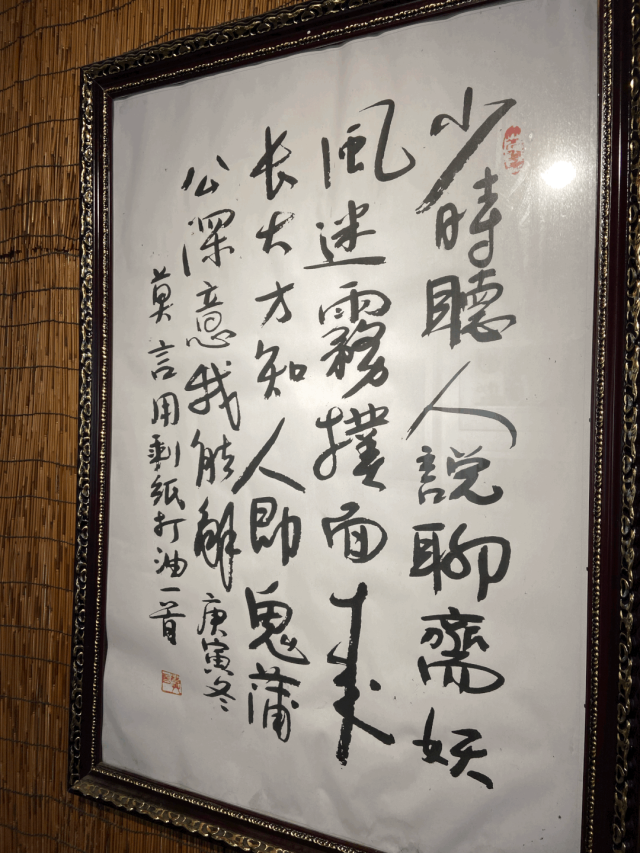 少時聽人説聊齋妖
風迷霧撲面來
长大方知人即鬼蒲
公深意我能解庚寅冬
莫言用剩紙打油一首